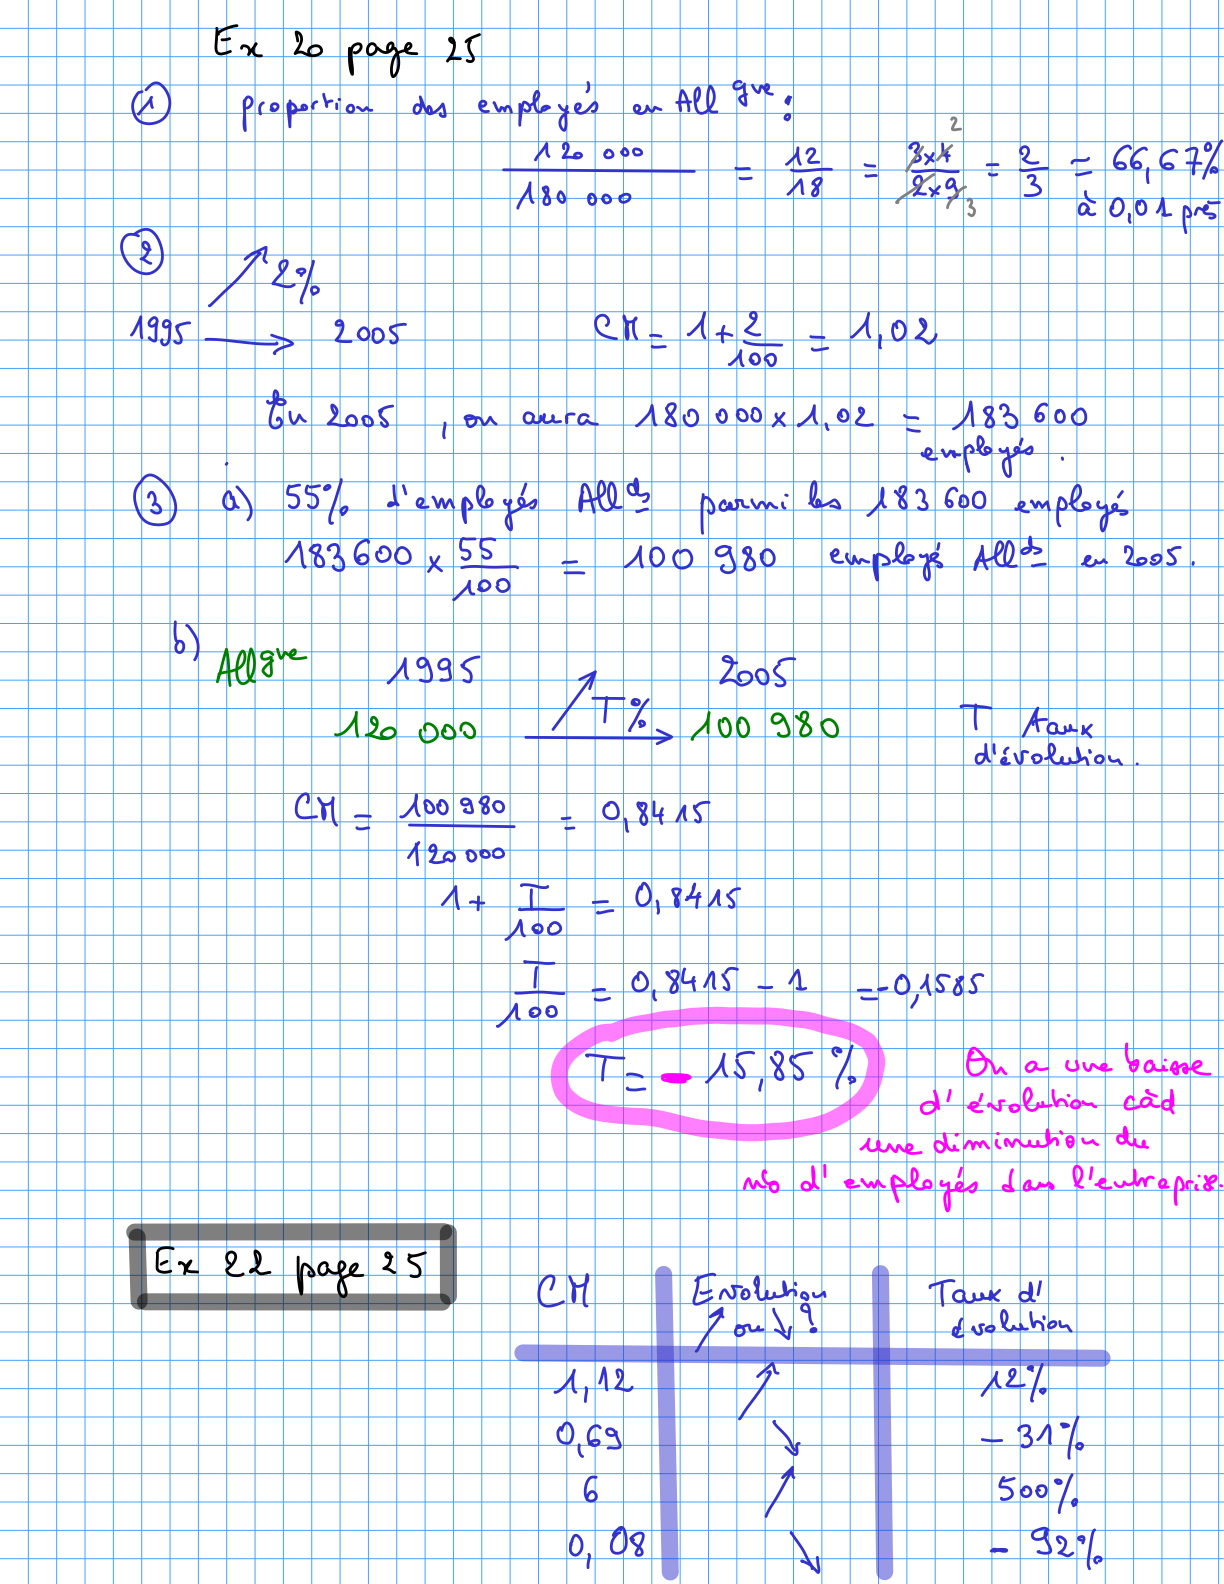 Ex 20 page 25
① proportion des employés en All gne :
120 000 / 180 000 = 12/18 = 3x4/2x9 = 2/3 ≈ 66,67%
2
3
à 0,01 près
② 2%
1995 → 2005 CM = 1 + 2/100 = 1,02
En 2005, on aura 180 000 x 1,02 = 183 600
employés.
③ a) 55% d'employés All ds parmi les 183 600 employés
183 600 x 55/100 = 100 980 employés All ds en 2005.
b) All gne 1995 2005
120 000 T% 100 980 T taux
d'évolution.
CM = 100 980 / 120 000 = 0,8415
1 + T/100 = 0,8415
T/100 = 0,8415 - 1 = -0,1585
T = - 15,85 %
On a une baisse
d'évolution càd
une diminution du
nb d'employés dans l'entreprise.
Ex 22 page 25
CM Evolution ↗ ou ↘ ? Taux d'évolution
1,12 ↗ 12%
0,69 ↘ - 31%
6 ↗ 500%
0,08 ↘ - 92%